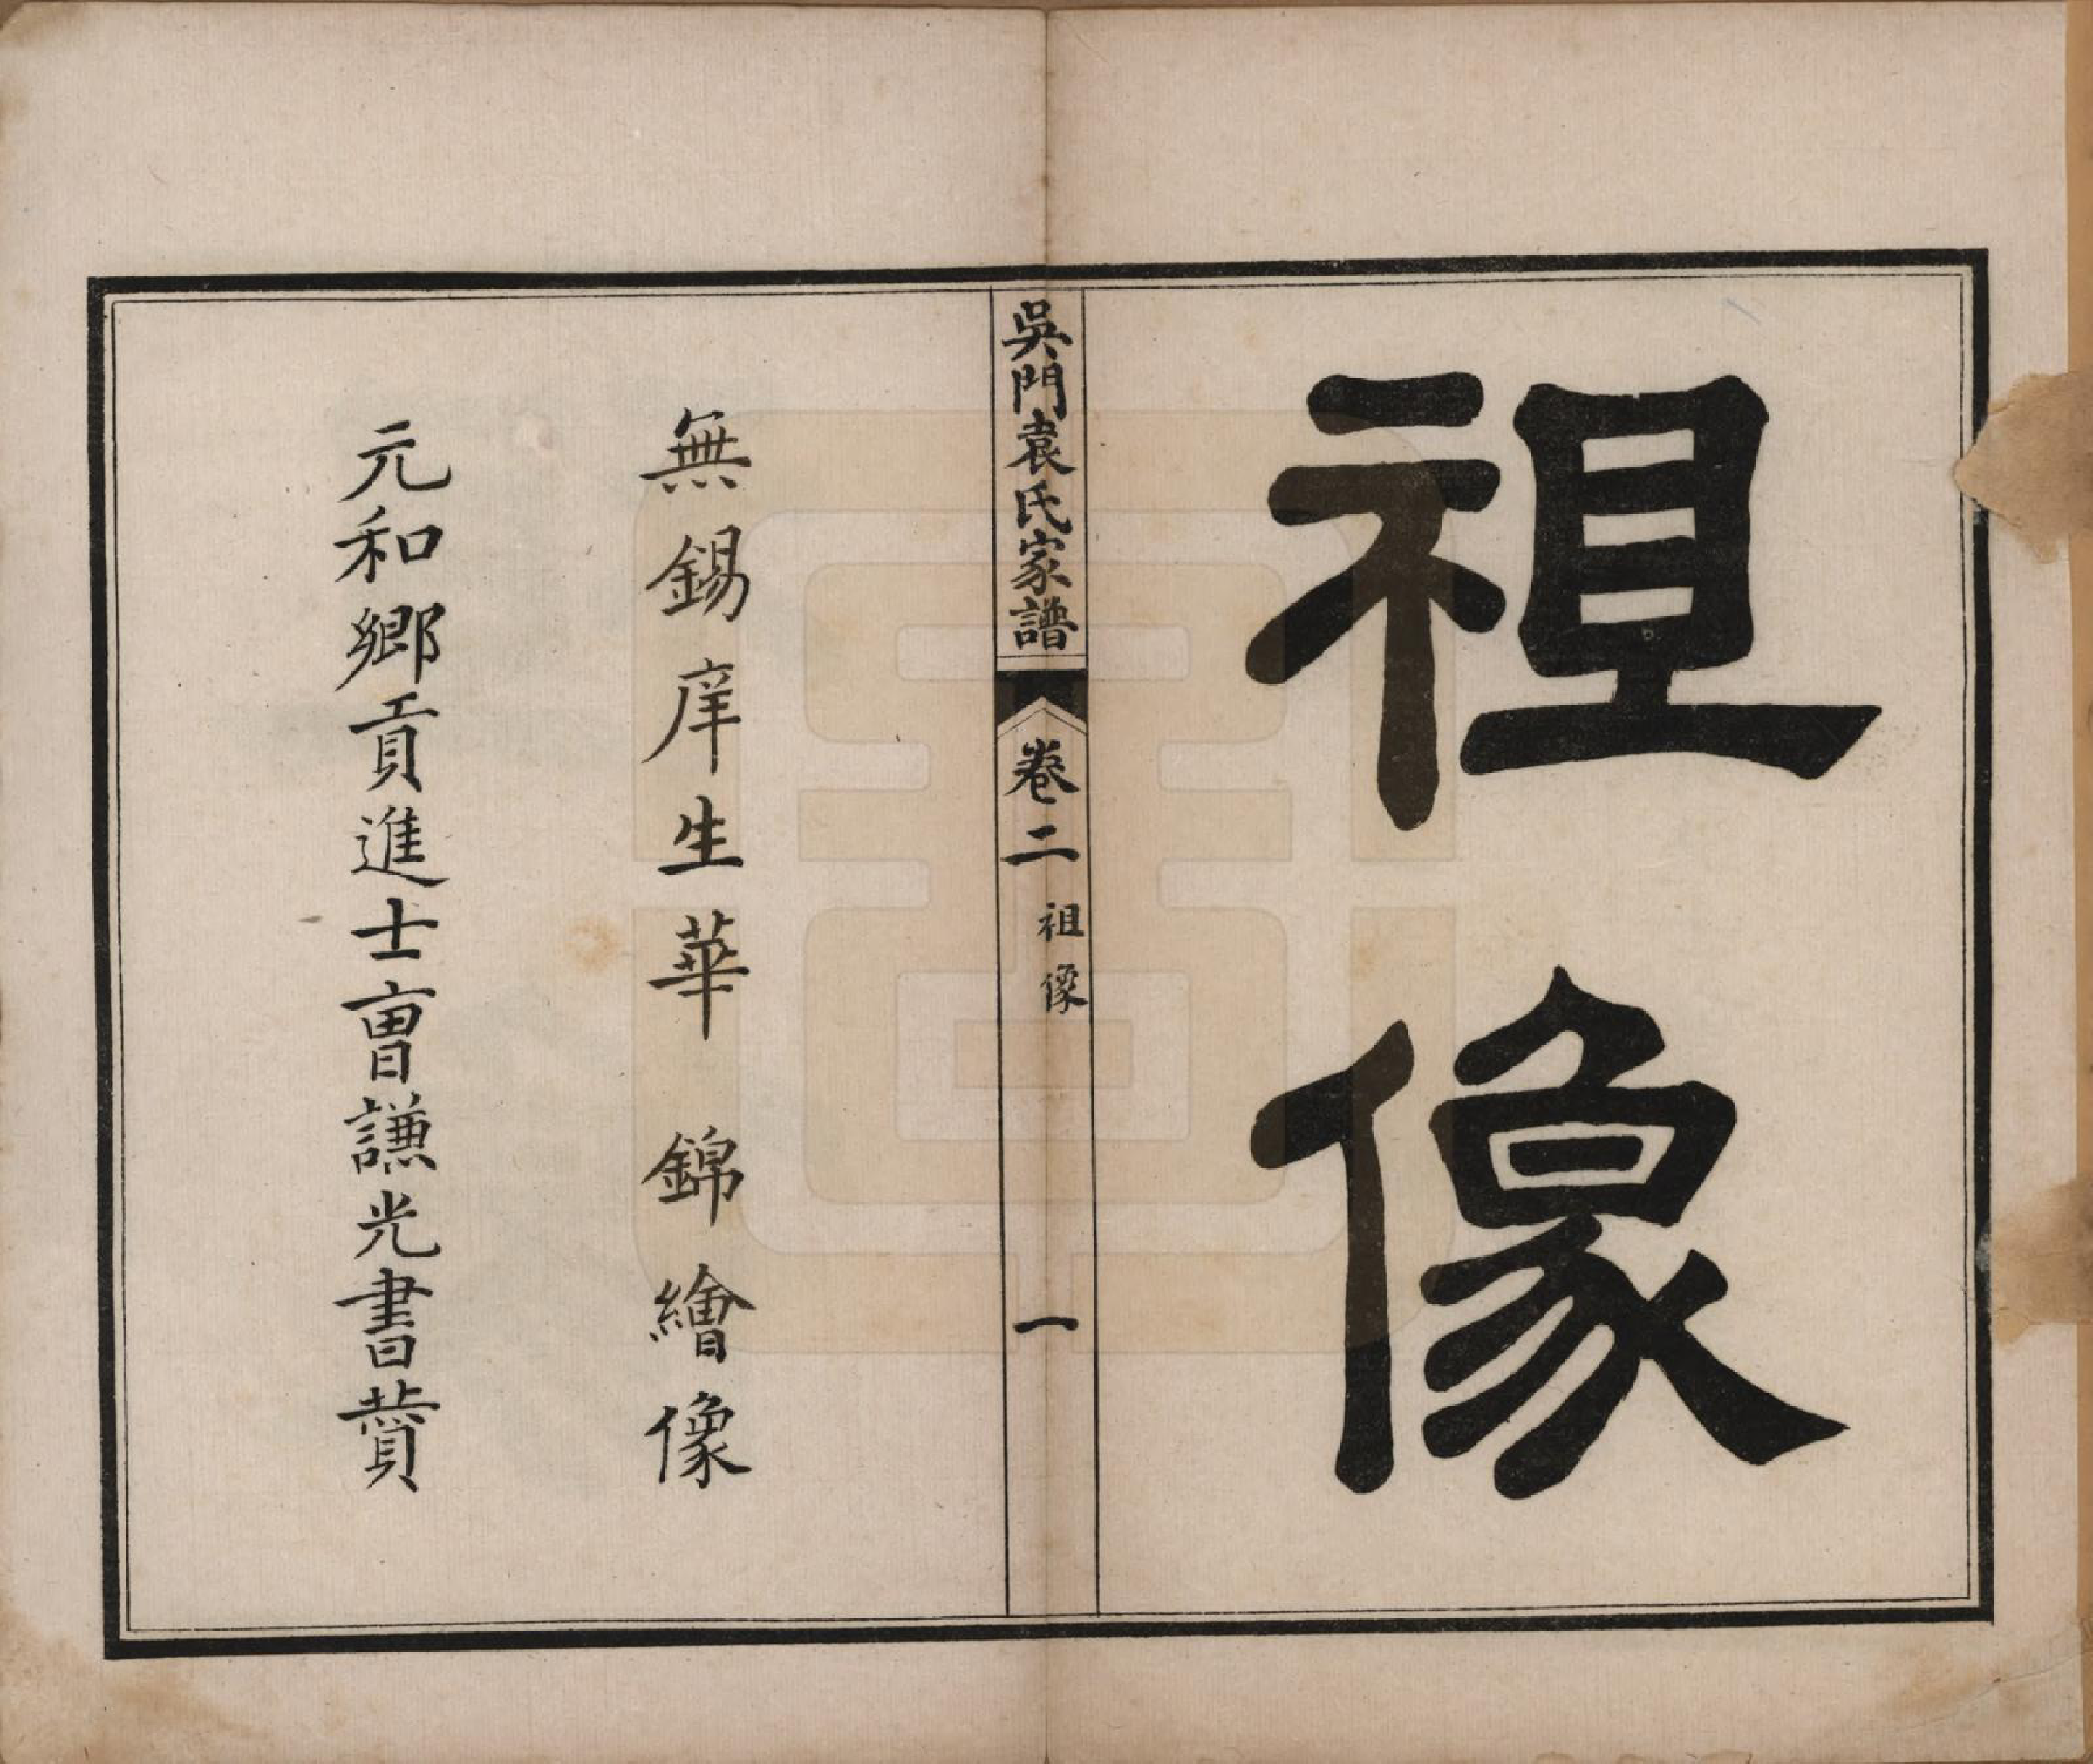 祖像
吳門袁氏家譜
卷二
祖像
一
無錫庠生華 錦繪像
元和鄉貢進士曹謙光書贊